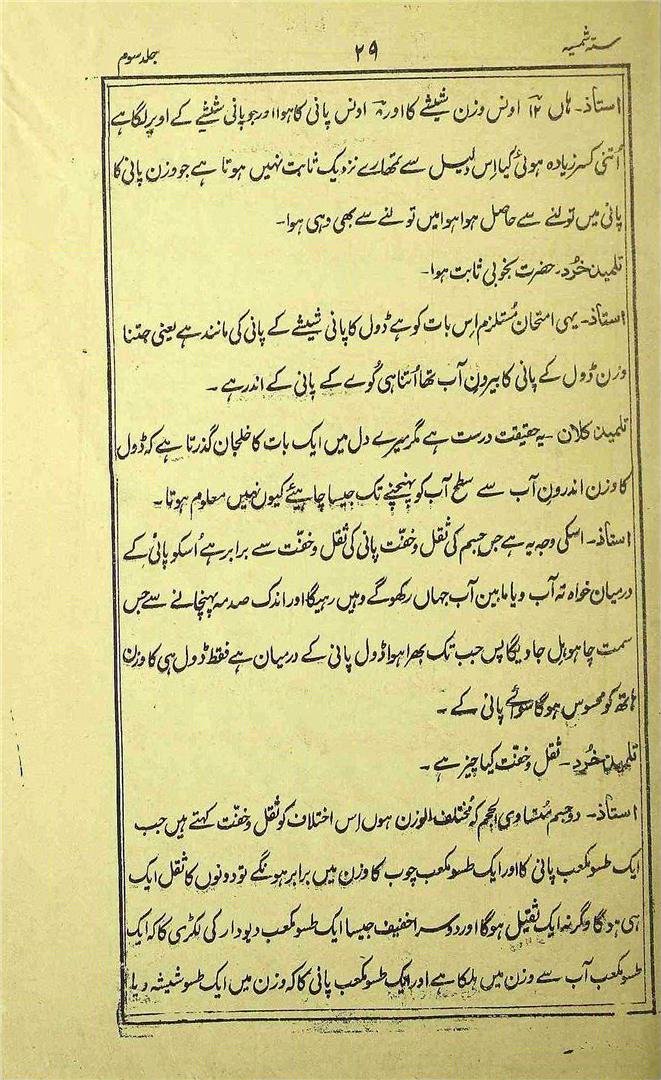 ستہ شمسیہ ۲۹ جلد سوم
استاذ۔ ہاں ۱۲ اونس وزن شیشے کا اور ۸ اونس پانی کا ہوا اور جو پانی شیشے کے اوپر لگا ہے
اُتنی کسر زیادہ ہوئی کیا اِس دلیل سے تمھارے نزدیک ثابت نہیں ہوتا ہے جو وزن پانی کا
پانی میں تولنے سے حاصل ہوا ہوا میں تولنے سے بھی وہی ہوا۔
تلمیذ خُرد۔ حضرت بخوبی ثابت ہوا۔
استاذ۔ یہی امتحان مُستلزم اِس بات کو ہے ڈول کا پانی شیشے کے پانی کی مانند ہے یعنی جتنا
وزن ڈول کے پانی کا بیرونِ آب تھا اُتنا ہی کُوے کے پانی کے اندر ہے۔
تلمیذ کلان۔ یہ حقیقت درست ہے مگر میرے دل میں ایک بات کا خلجان گذرتا ہے کہ ڈول
کا وزن اندرونِ آب سے سطحِ آب کو پہنچنے تک جیسا چاہیئے کیوں نہیں معلوم ہوتا۔
استاذ۔ اسکی وجہ یہ ہے جس جسم کی ثقل و خفّت پانی کی ثقل و خفّت سے برابر ہے اُسکو پانی کے
درمیان خواہ تہ آب و یا مابین آب جہاں رکھوگے وہیں رہیگا اور اندک صدمہ پہنچانے سے جس
سمت چاہو ہل جاویگا پس جب تک بھرا ہوا ڈول پانی کے درمیان ہے فقط ڈول ہی کا وزن
ہاتھ کو محسوس ہوگا سوائے پانی کے۔
تلمیذ خُرد۔ ثقل و خفّت کیا چیز ہے۔
استاذ۔ دو جسم مُتساوی الحجم کہ مُختلف الوزن ہوں اِس اختلاف کو ثقل و خفّت کہتے ہیں جب
ایک طسو مکعب پانی کا اور ایک طسو مکعب چوب کا وزن میں برابر ہونگے تو دونوں کا ثقل ایک
ہی ہوگا وگرنہ ایک ثقیل ہوگا اور دوسرا خفیف جیسا ایک طسو مکعب دیودار کی لکڑی کا کہ ایک
طسو مکعب آب سے وزن میں ہلکا ہے اور ایک طسو مکعب پانی کا کہ وزن میں ایک طسو شیشہ و یا